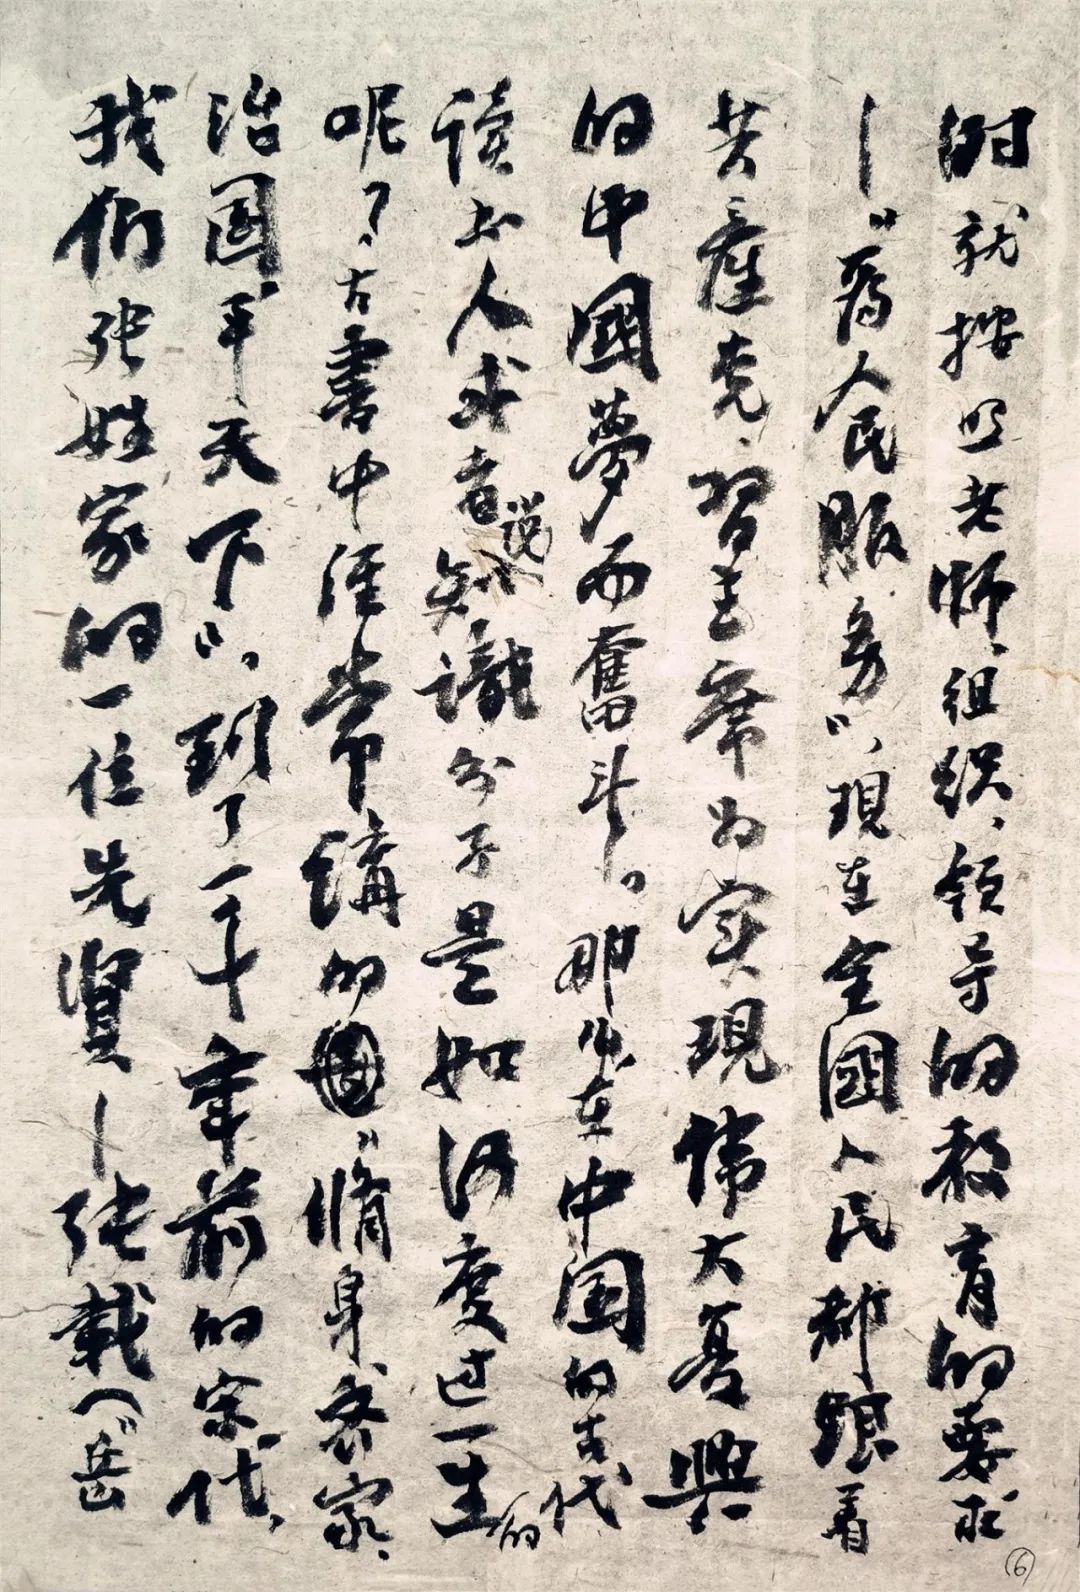 时就按照老师、组织、领导的教育的要求
—“爲人民服务”,现在全國人民都跟着
共产党、習主席为实现伟大复興
的中國夢而奮斗。那么在中国的古代
读书人或者说知識分子是如何度过一生的
呢？古書中经常講的“脩身、齐家、
治国、平天下”,到了一千年前的宋代,
我们张姓家的一位先賢—张载（“岳
⑥